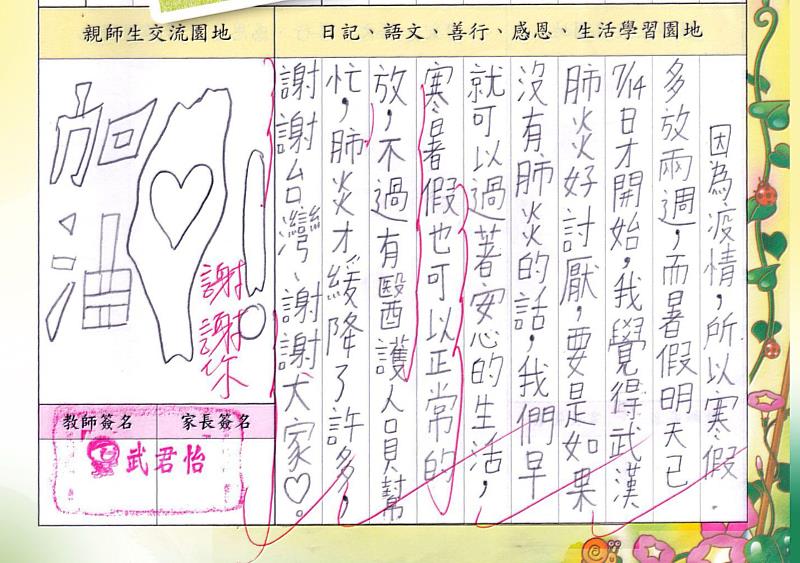 親師生交流園地
日記、語文、善行、感恩、生活學習園地
因為疫情，所以寒假
多放兩週，而暑假明天已
7/14日才開始，我覺得武漢
肺炎好討厭，要是如果
沒有肺炎的話，我們早
就可以過著安心的生活，
寒暑假也可以正常的
放，不過有醫護人員幫
忙，肺炎才緩降了許多，
謝謝台灣、謝謝大家♡。
加油！
謝謝你
教師簽名
家長簽名
武君怡